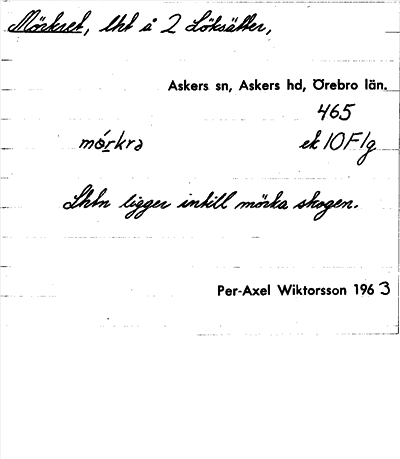 Mörkret, lht å 2 Löksätter,
Askers sn, Askers hd, Örebro län.
465
mǿrkrə ek 10F1g
Lhtn ligger intill mörka skogen.
Per-Axel Wiktorsson 1963